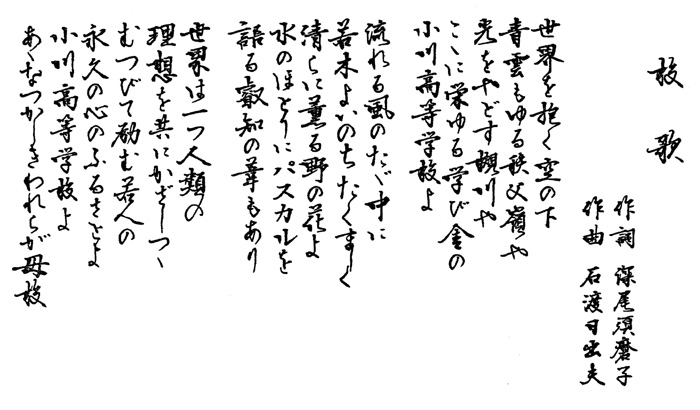 校歌
作詞 深尾須磨子
作曲 石渡日出夫
世界を抱く空の下
青雲もゆる秩父嶺や
光をやどす槻川や
こゝに栄ゆる学び舎の
小川高等学校よ
流れる風のたゞ中に
若木よいのちたくましく
清らに薫る野の花よ
水のほとりにパスカルを
語る叡知の葦もあり
世界は一つ人類の
理想を共にかざしつゝ
むつびて励む若人の
永久の心のふるさとよ
小川高等学校よ
あゝなつかしきわれらが母校